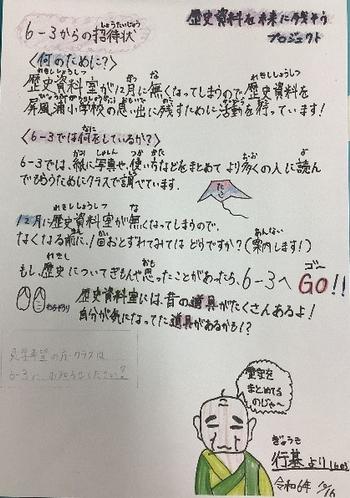 6-3からの招待状
しょうたいじょう
歴史資料を未来に残そう
プロジェクト
<何のために?>
歴史資料室が12月に無くなってしまうので、歴史資料を
屏風浦小学校の思い出に残すために活動を行っています!
<6-3では何をしているか?>
6-3では、紙に写真や、使い方などをまとめてより多くの人に読ん
でもらうためにクラスで調べています。
たこ
12月に歴史資料室が無くなってしまうので、
なくなる前に、1回おとずれてみてはどうですか?(案内します!)
もし、歴史についてぎもんや思ったことがあったら、6-3へGO!!
ゴー
わらぞうり
歴史資料室には、昔の道具がたくさんあるよ!
自分が気になってた道具があるかも!?
見学希望の方・クラスは
6-3に、お知らせください!
歴史を
まとめてる
のじゃ〜
ぎょうき
行基より
令和6年 12/16